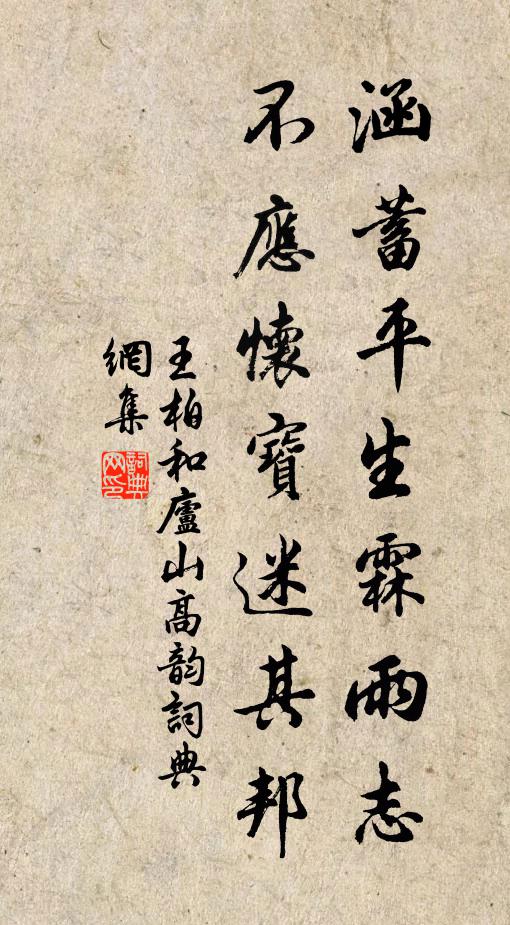 涵蓄平生霖雨志
不應懷寶迷其邦
王柏和廬山高韵詞典
網集
詞典網印